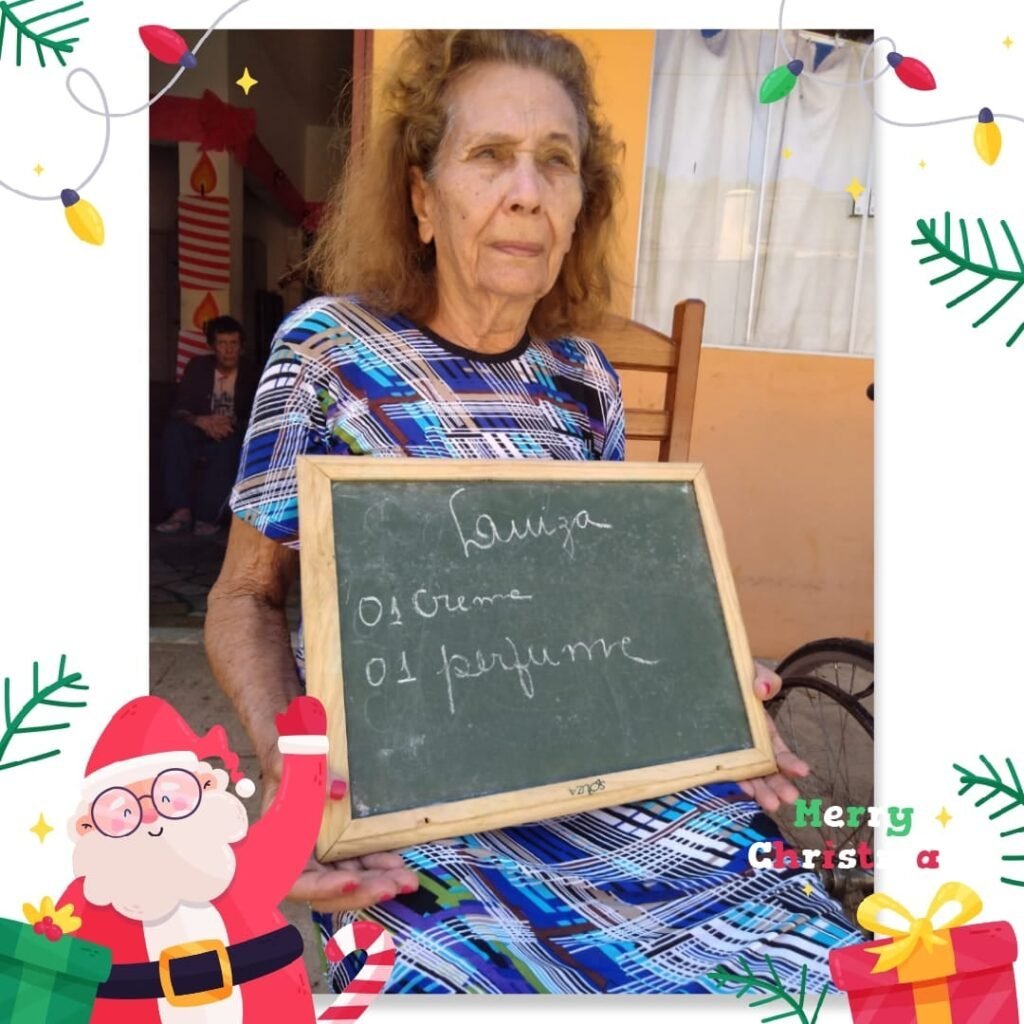 Lauiza
01 Creme
01 perfume
Merry
Christma